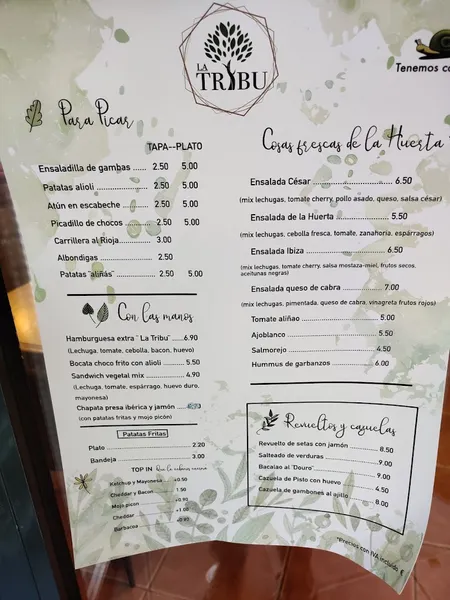 LA
TRIBU
Tenemos
Para Picar
TAPA--PLATO
Ensaladilla de gambas ...... 2.50 5.00
Patatas alioli ................ 2.50 5.00
Atún en escabeche ........ 2.50 5.00
Picadillo de chocos ....... 2.50 5.00
Carrillera al Rioja.......... 3.00
Albondigas ................. 2.50
Patatas "aliñás" ............. 2.50 5.00
Con las manos
Hamburguesa extra "La Tribu" ....6.90
(Lechuga, tomate, cebolla, bacon, huevo)
Bocata choco frito con alioli ........ 5.50
Sandwich vegetal mix .......... 4.90
(Lechuga, tomate, espárrago, huevo duro,
mayonesa)
Chapata presa ibérica y jamón
(con patatas fritas y mojo picón)
Patatas Fritas
Plato .................... 2.20
Bandeja .................. 3.00
TOP IN
Ketchup y Mayonesa +0.50
Cheddar y Bacon 1.50
Mojo picon +0.90
Cheddar +1.00
Barbacoa +0.90
Cosas frescas de la Huerta
Ensalada César ........................ 6.50
(mix lechugas, tomate cherry, pollo asado, queso, salsa césar)
Ensalada de la Huerta ................ 5.50
(mix lechugas, cebolla fresca, tomate, zanahoria, espárragos)
Ensalada Ibiza ........................ 6.50
(mix lechugas, tomate cherry, salsa mostaza-miel, frutos secos,
aceitunas negras)
Ensalada queso de cabra ............ 7.00
(mix lechugas, pimentada, queso de cabra, vinagreta frutos rojos)
Tomate aliñao ........................ 5.00
Ajoblanco ............................ 5.50
Salmorejo ............................ 4.50
Hummus de garbanzos ............... 6.00
Revueltos y cazuelas
Revuelto de setas con jamón ......... 8.50
Salteado de verduras ................ 9.00
Bacalao al "Douro" .................. 9.00
Cazuela de Pisto con huevo .......... 4.50
Cazuela de gambones al ajillo ....... 8.00
*Precios con IVA incluido €